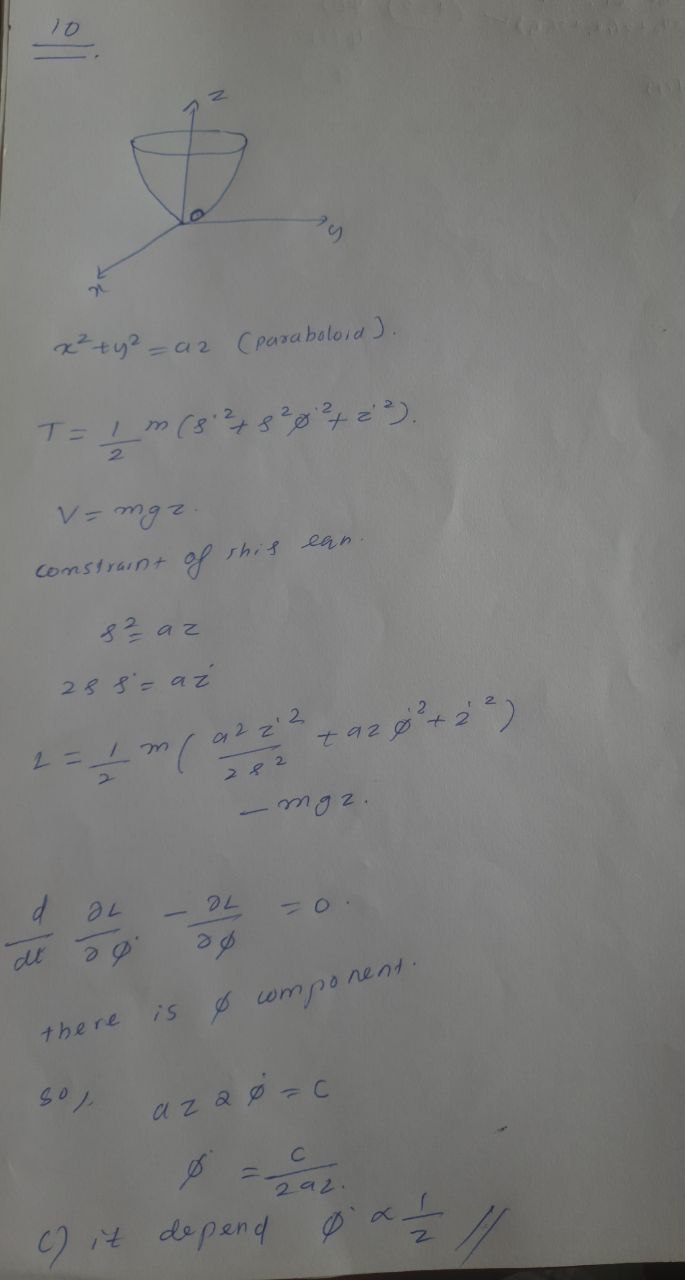 10
z
y
x
x² + y² = az (paraboloid).
T = 1/2 m (ρ̇² + ρ²φ̇² + ż²).
V = mgz.
constraint of this eqn.
ρ² = az
2ρρ̇ = aż
L = 1/2 m ( a²ż²/2ρ² + azφ̇² + ż² )
− mgz.
d/dt ∂L/∂φ̇ − ∂L/∂φ = 0.
there is φ component.
so, az2φ̇ = c
φ̇ = c/2az.
c) it depend φ̇ ∝ 1/z //